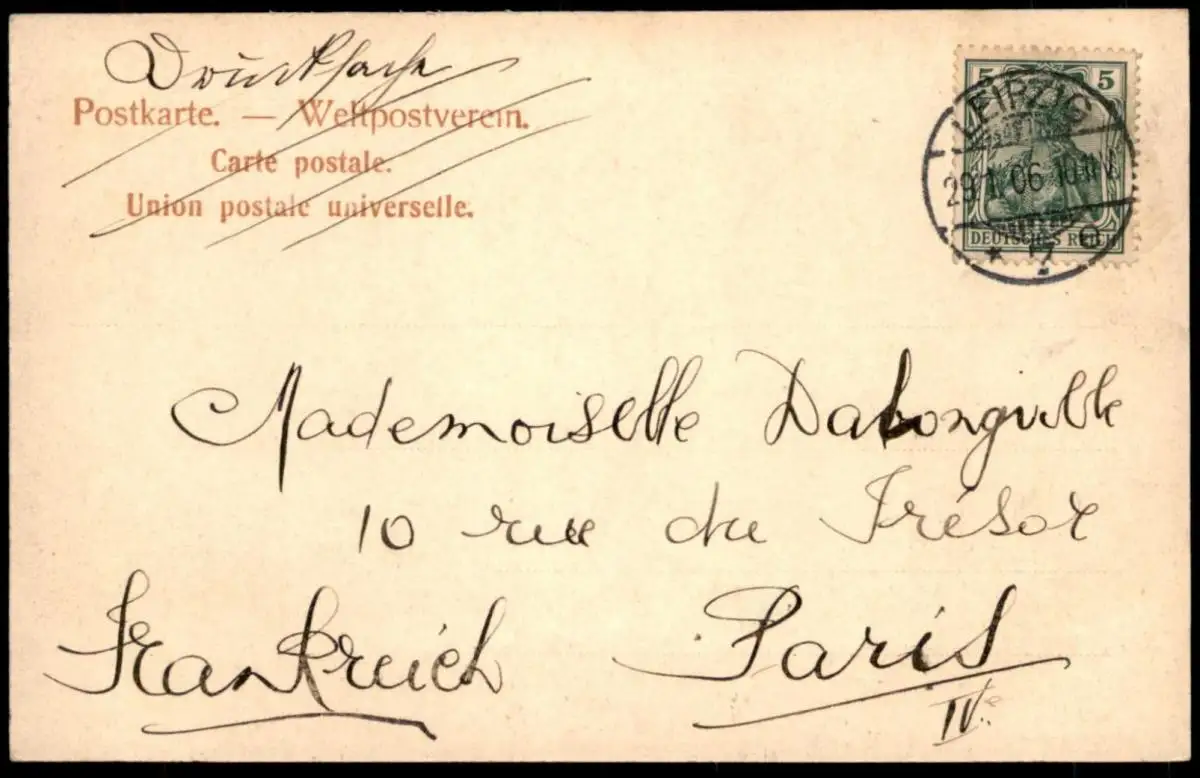 Drucksache
Postkarte. — Weltpostverein.
Carte postale.
Union postale universelle.
5 5
LEIPZIG
29.1.06 10-11V.
DEUTSCHES REICH
* 17
Mademoiselle Dalongville
10 rue du Trésor
Frankreich Paris
IVe.